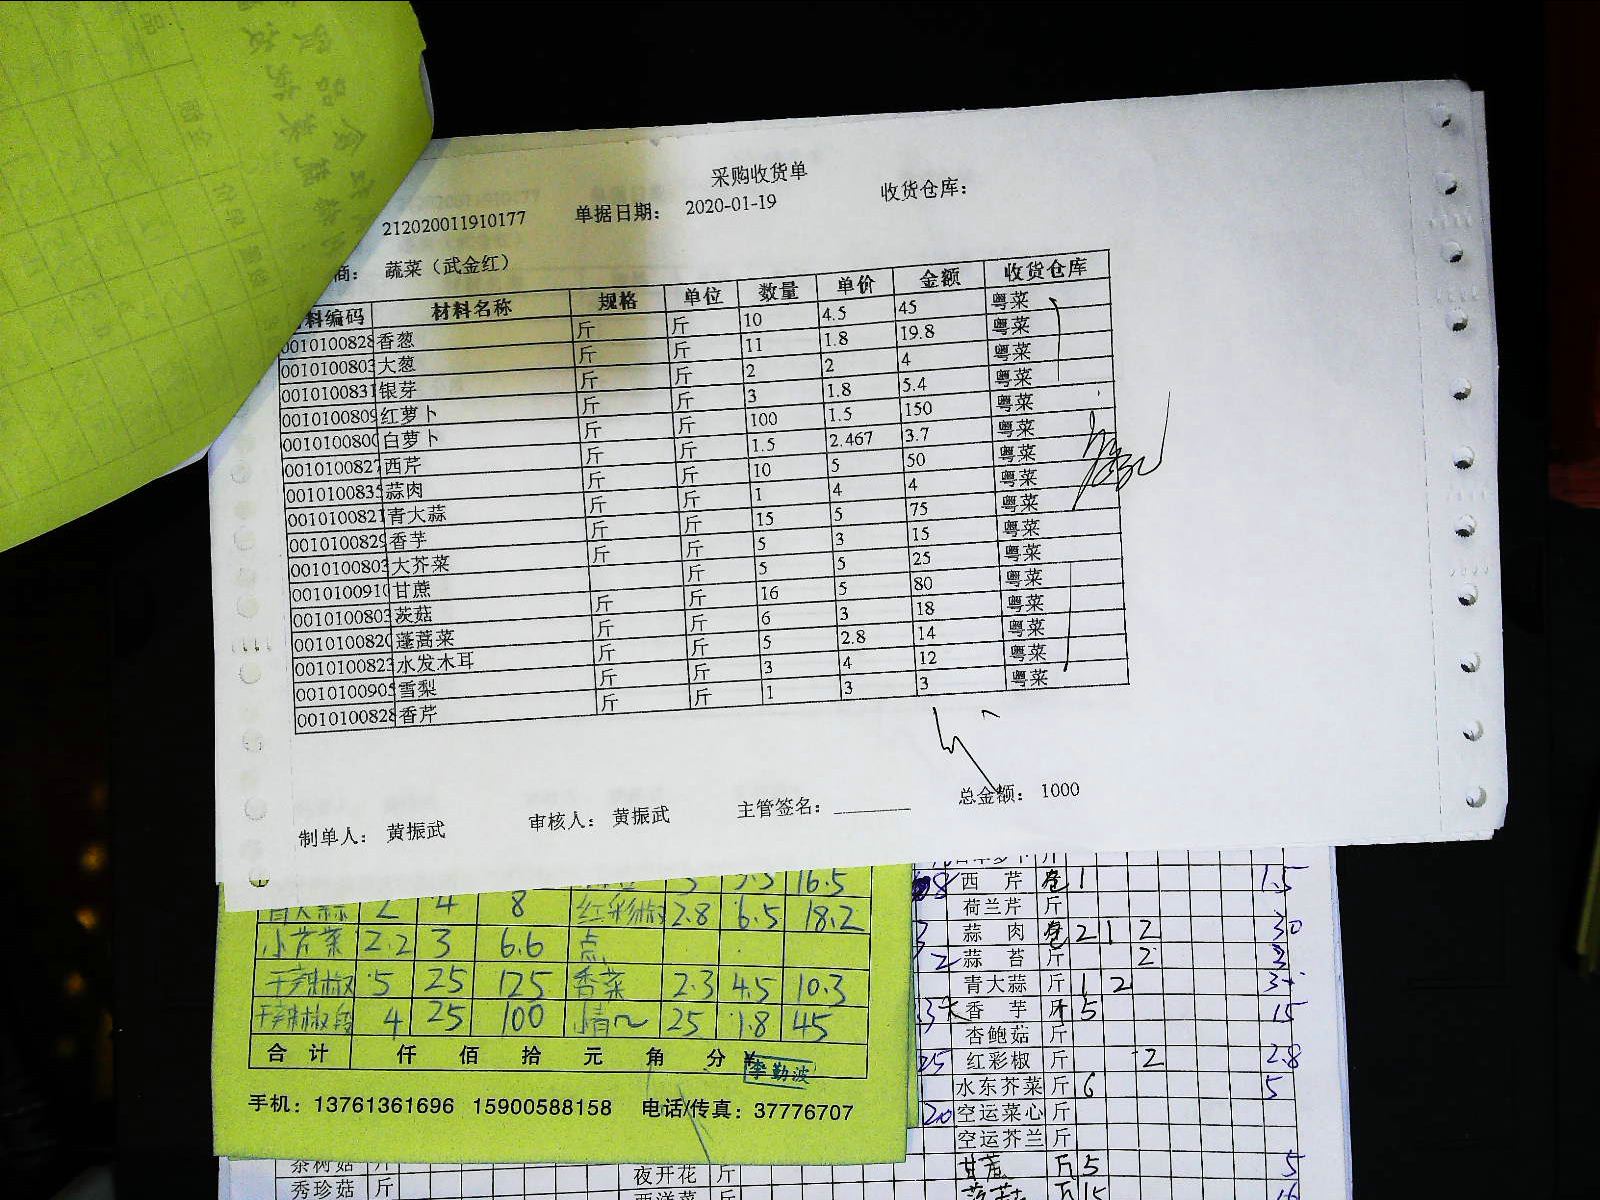 采购收货单
212020011910177 单据日期： 2020-01-19 收货仓库：
商： 蔬菜（武金红）
料编码 材料名称 规格 单位 数量 单价 金额 收货仓库
0010100828 香葱 斤 斤 10 4.5 45 粤菜
0010100803 大葱 斤 斤 11 1.8 19.8 粤菜
0010100831 银芽 斤 斤 2 2 4 粤菜
0010100809 红萝卜 斤 斤 3 1.8 5.4 粤菜
0010100800 白萝卜 斤 斤 100 1.5 150 粤菜
0010100827 西芹 斤 斤 1.5 2.467 3.7 粤菜
0010100835 蒜肉 斤 斤 10 5 50 粤菜
0010100821 青大蒜 斤 斤 1 4 4 粤菜
0010100829 香芋 斤 斤 15 5 75 粤菜
0010100803 大芥菜 斤 斤 5 3 15 粤菜
0010100910 甘蔗 斤 5 5 25 粤菜
0010100803 茨菇 斤 斤 16 5 80 粤菜
0010100820 蓬蒿菜 斤 斤 6 3 18 粤菜
0010100823 水发木耳 斤 斤 5 2.8 14 粤菜
0010100905 雪梨 斤 斤 3 4 12 粤菜
0010100828 香芹 斤 斤 1 3 3 粤菜
制单人： 黄振武 审核人： 黄振武 主管签名： 总金额： 1000
16.5
青大蒜 2 4 8 红彩椒 2.8 6.5 18.2
小芹菜 2.2 3 6.6 点
干辣椒 5 25 125 香菜 2.3 4.5 10.3
干辣椒段 4 25 100 25 1.8 45
合 计 仟 佰 拾 元 角 分
李勤波
手机：13761361696 15900588158 电话/传真：37776707
西 芹 1 1.5
荷兰芹 斤
蒜 肉 2 1 2 30
蒜 苔 斤 2
青大蒜 斤 1 2
香 芋 斤 5 15
杏鲍菇 斤
红彩椒 斤 2 2.8
水东芥菜 斤 6 5
20 空运菜心 斤
空运芥兰 斤
甘蔗 斤 5 5
茶树菇 斤 夜开花 斤
秀珍菇 斤 西洋菜 斤